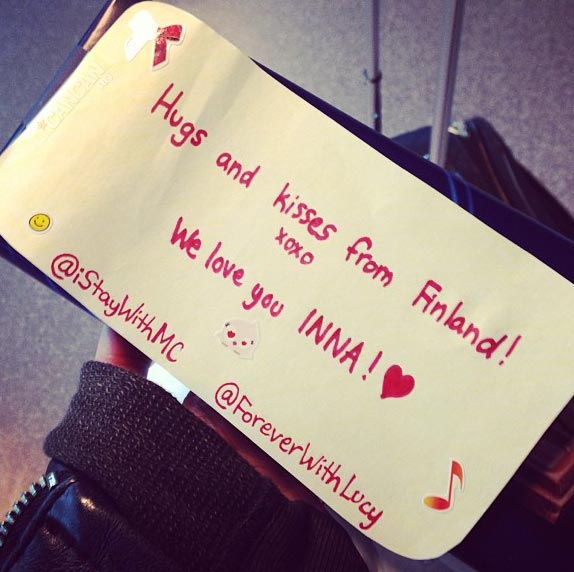 Hugs and kisses from Finland!
xoxo
We love you INNA!
@iStayWithMC
@ForeverWithLucy